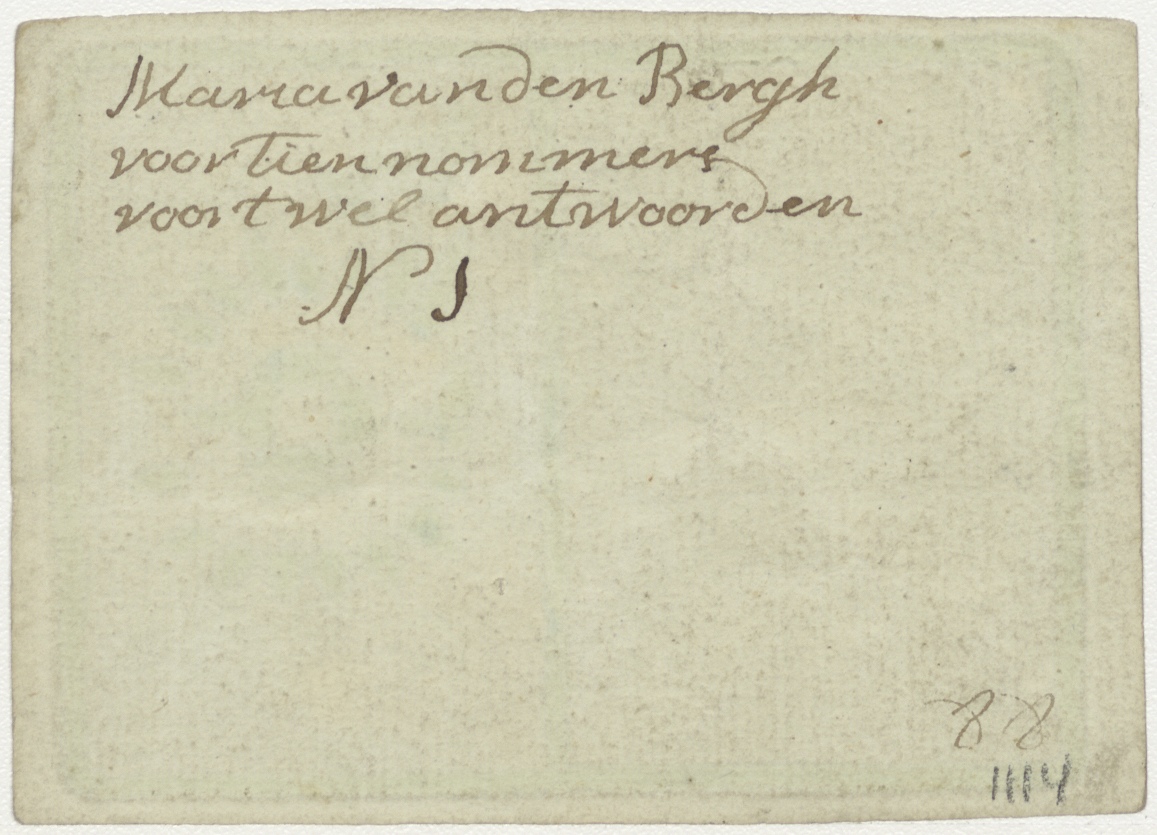 Maria van den Bergh
voor tien nommers
voor t wel antwoorden
N 1
88
1114